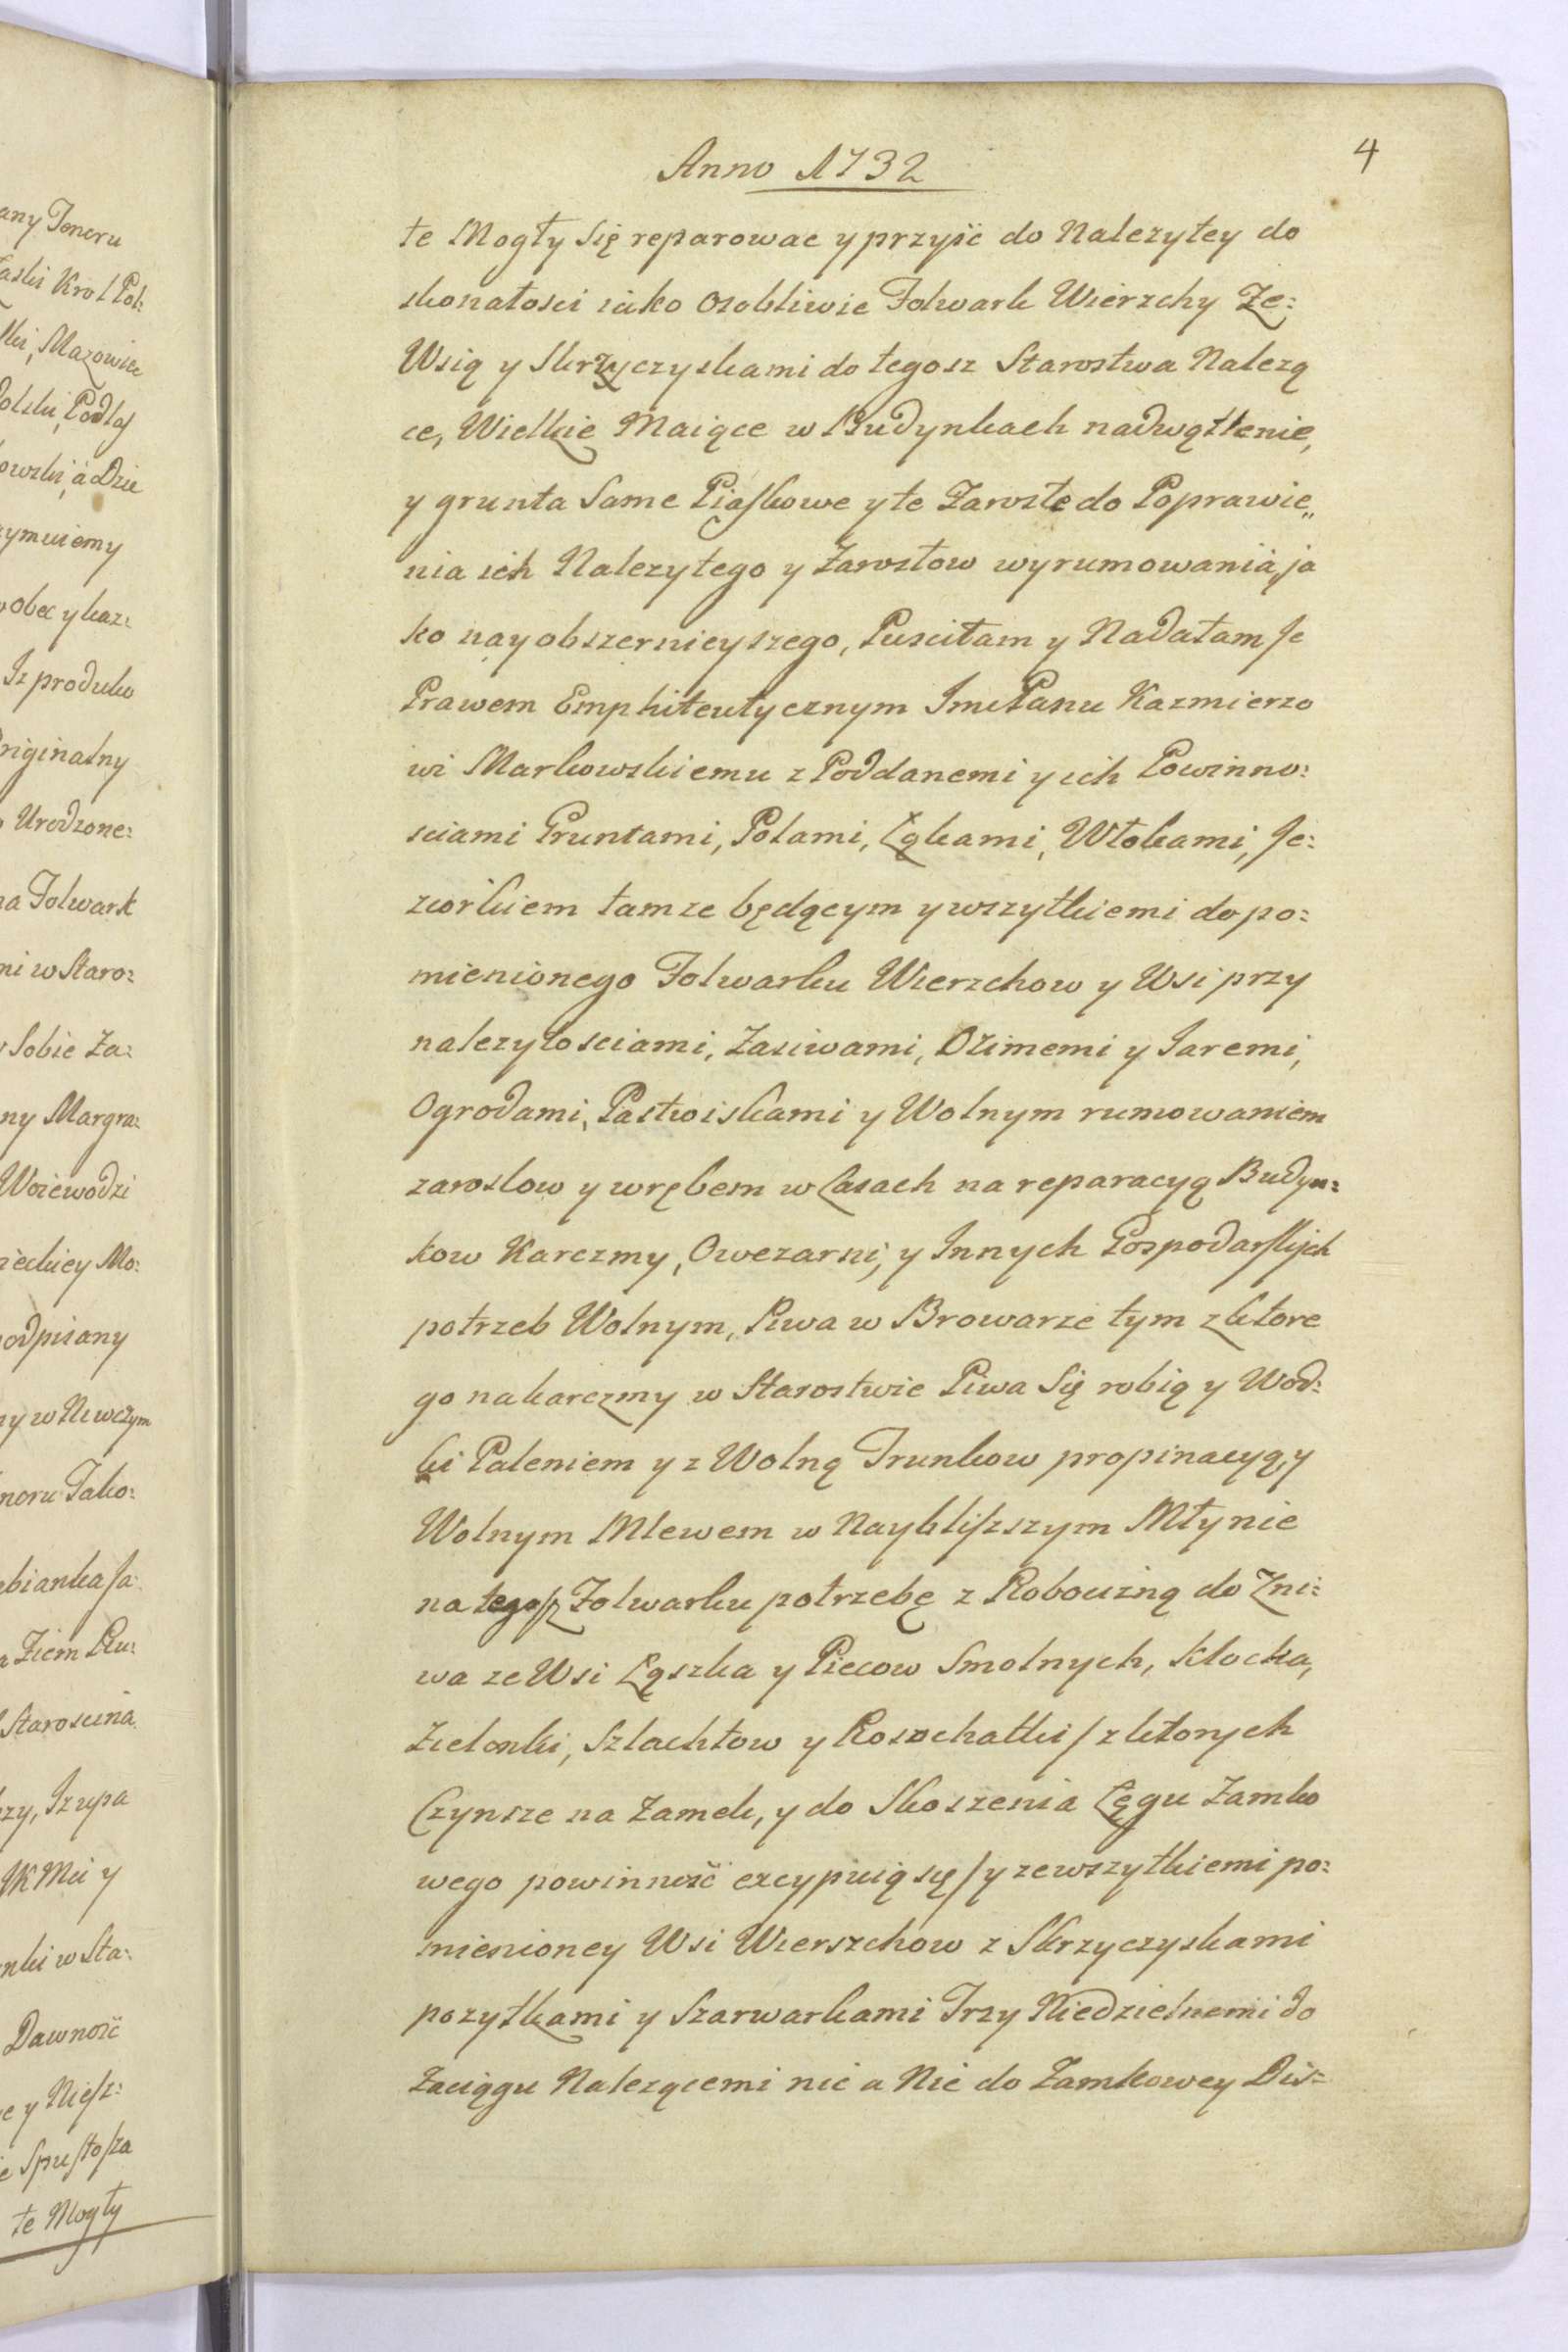 any Tenoru
łaski Krol Pol:
lki, Mazowie
Polski, Podlaſ
owski, á Dzie
zymuiemy
obec y kaz:
Iz produko
Originalny
Urodzone:
na Folwark
mi w Staro:
Sobie Za:
ny Margra:
Woiewodzi
ieckiey Mo:
odpisany
ny w Niwczym
noru Tako:
bianka Ja:
Ziem Ru:
Staroscina
zy, Iz upa
JKMci y
nki w Sta:
Dawność
e y Nieſz:
e Spuſtoſza
te Mogły
4
Anno 1732
te Mogły Się reparowac y przyiść do Nalezytey do
skonałosci iako osobliwie Folwark Wierzchy Ze:
Wsią y Skrzyczyskami do tegosz Starostwa Nalezą
ce, Wielkie Maiące w Budynkach nadwątlenie,
y grunta Same Piaſkowe y te Zarosłe do Poprawie„
nia ich Nalezytego y Zarostow wyrumowania, ja
ko nayobszernieyszego, Pusciłam y Nadałam Je
Prawem Emphiteutycznym JmcPanu Kazmierzo
wi Markowskiemu z Poddanemi y ich Powinno:
sciami Gruntami, Polami, Łąkami, Włokami, Je:
ziorkiem tamze będącym y wszytkiemi do po:
mienionego Folwarku Wierzchow y Wsi przy
nalezytosciami, Zasiwami, Ozimemi y Jaremi,
Ogrodami, Pastwiskami y Wolnym rumowaniem
zaroslow y wrębem w Lasach na reparacyą Budyn:
kow Karczmy, Owczarni, y Innych Gospodarſkich
potrzeb Wolnym, Piwa w Browarze tym z ktore
go na karczmy w Starostwie Piwa Się robią y Wod:
ki Paleniem y z Wolną Trunkow propinacyą, y
Wolnym Mlewem w Naybliſzszym Młynie
na tegoſz Folwarku potrzebę z Robocizną do Zni:
wa ze Wsi Łąszka y Piecow Smolnych, Klocka,
Zielonki, Szlachtow y Rosochatki / z ktorych
Czynsze na Zamek, y do Skoszenia Łęgu Zamko
wego powinność excypuią się / y ze wszytkiemi po:
mienioney Wsi Wierszchow z Skrzyczyskami
pozytkami y Szarwarkami Trzy Niedzielnemi do
Zaciągu Nalezącemi nic a Nic do Zamkowey Dis: